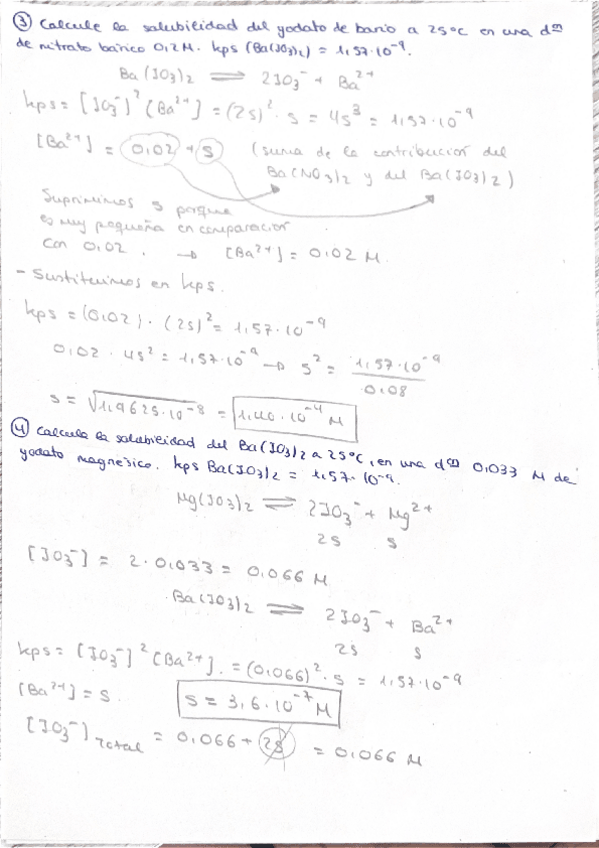 ③ Calcule la solubilidad del yodato de bario a 25ºC en una dºⁿ
de nitrato bárico 0,2M. Kps (Ba(IO3)2) = 1,57·10⁻⁹.
Ba(IO3)2 ⇌ 2IO3⁻ + Ba²⁺
Kps = [IO3⁻]² [Ba²⁺] = (2s)² · s = 4s³ = 1,57·10⁻⁹
[Ba²⁺] = 0,02 + s (suma de la contribución del
Ba(NO3)2 y del Ba(IO3)2)
Suprimimos s porque
es muy pequeña en comparación
con 0,02. → [Ba²⁺] = 0,02 M.
- Sustituimos en Kps.
Kps = (0,02) · (2s)² = 1,57·10⁻⁹
0,02 · 4s² = 1,57·10⁻⁹ → s² = 1,57·10⁻⁹ / 0,08
s = √1,9625·10⁻⁸ = 1,40·10⁻⁴ M
④ Calcula la solubilidad del Ba(IO3)2 a 25ºC, en una dºⁿ 0,033 M de
yodato magnésico. Kps Ba(IO3)2 = 1,57·10⁻⁹.
Mg(IO3)2 ⇌ 2IO3⁻ + Mg²⁺
2s s
[IO3⁻] = 2·0,033 = 0,066 M
Ba(IO3)2 ⇌ 2IO3⁻ + Ba²⁺
2s s
Kps = [IO3⁻]² [Ba²⁺]. = (0,066)² · s = 1,57·10⁻⁹
[Ba²⁺] = s s = 3,6·10⁻⁷ M
[IO3⁻] Total = 0,066 + 2s = 0,066 M